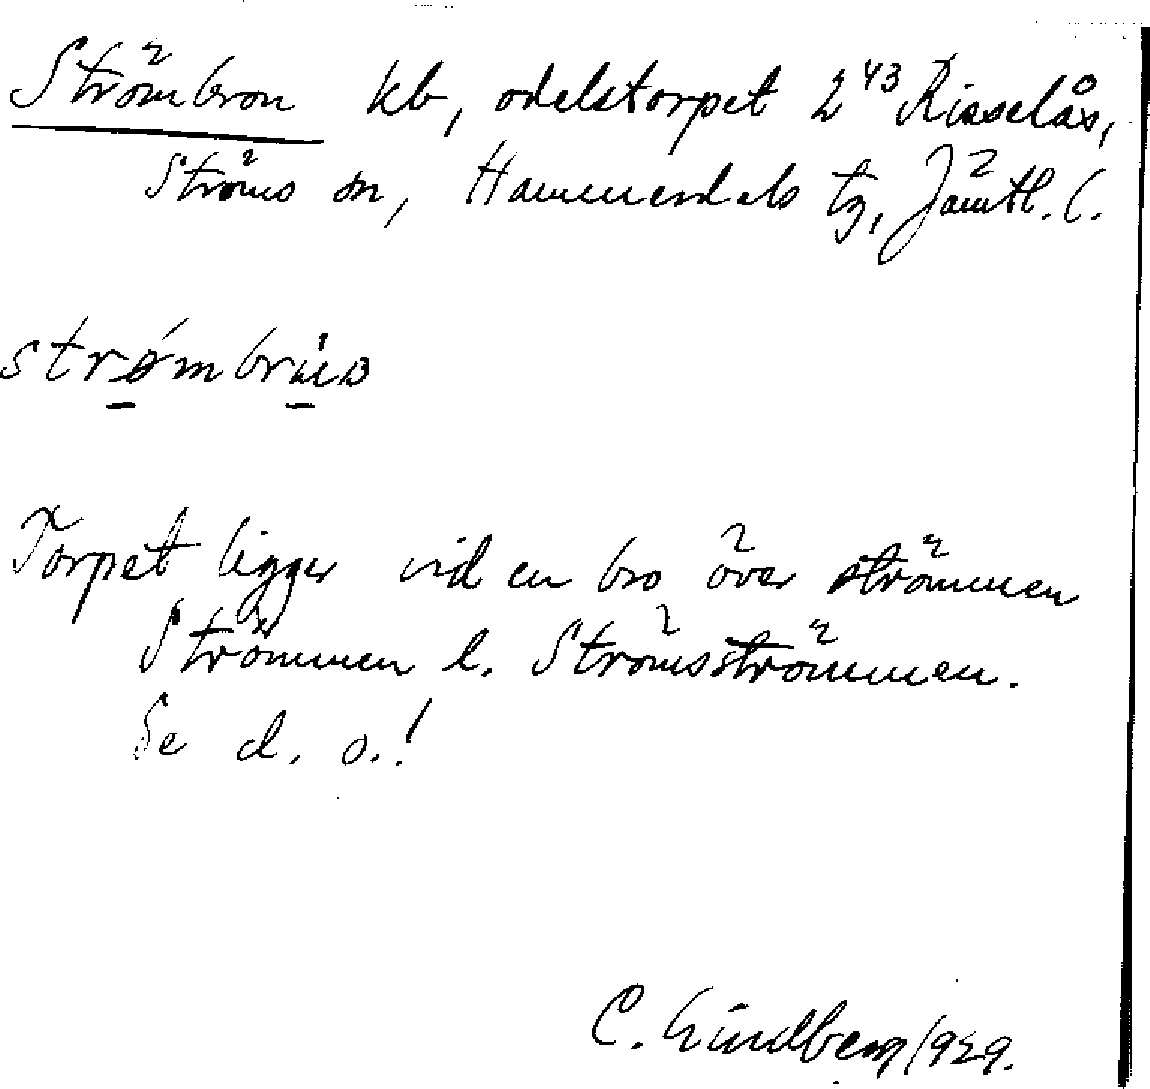 Strömbron kb, odelstorpet 2⁴³ Risselås,
Ströms sn, Hammerdals tg, Jämtl. l.
strømbrùɷ
Torpet ligger vid en bro över strömmen
Strömmen l. Strömsströmmen.
Se d. o.!
C. Lindberg 1929.